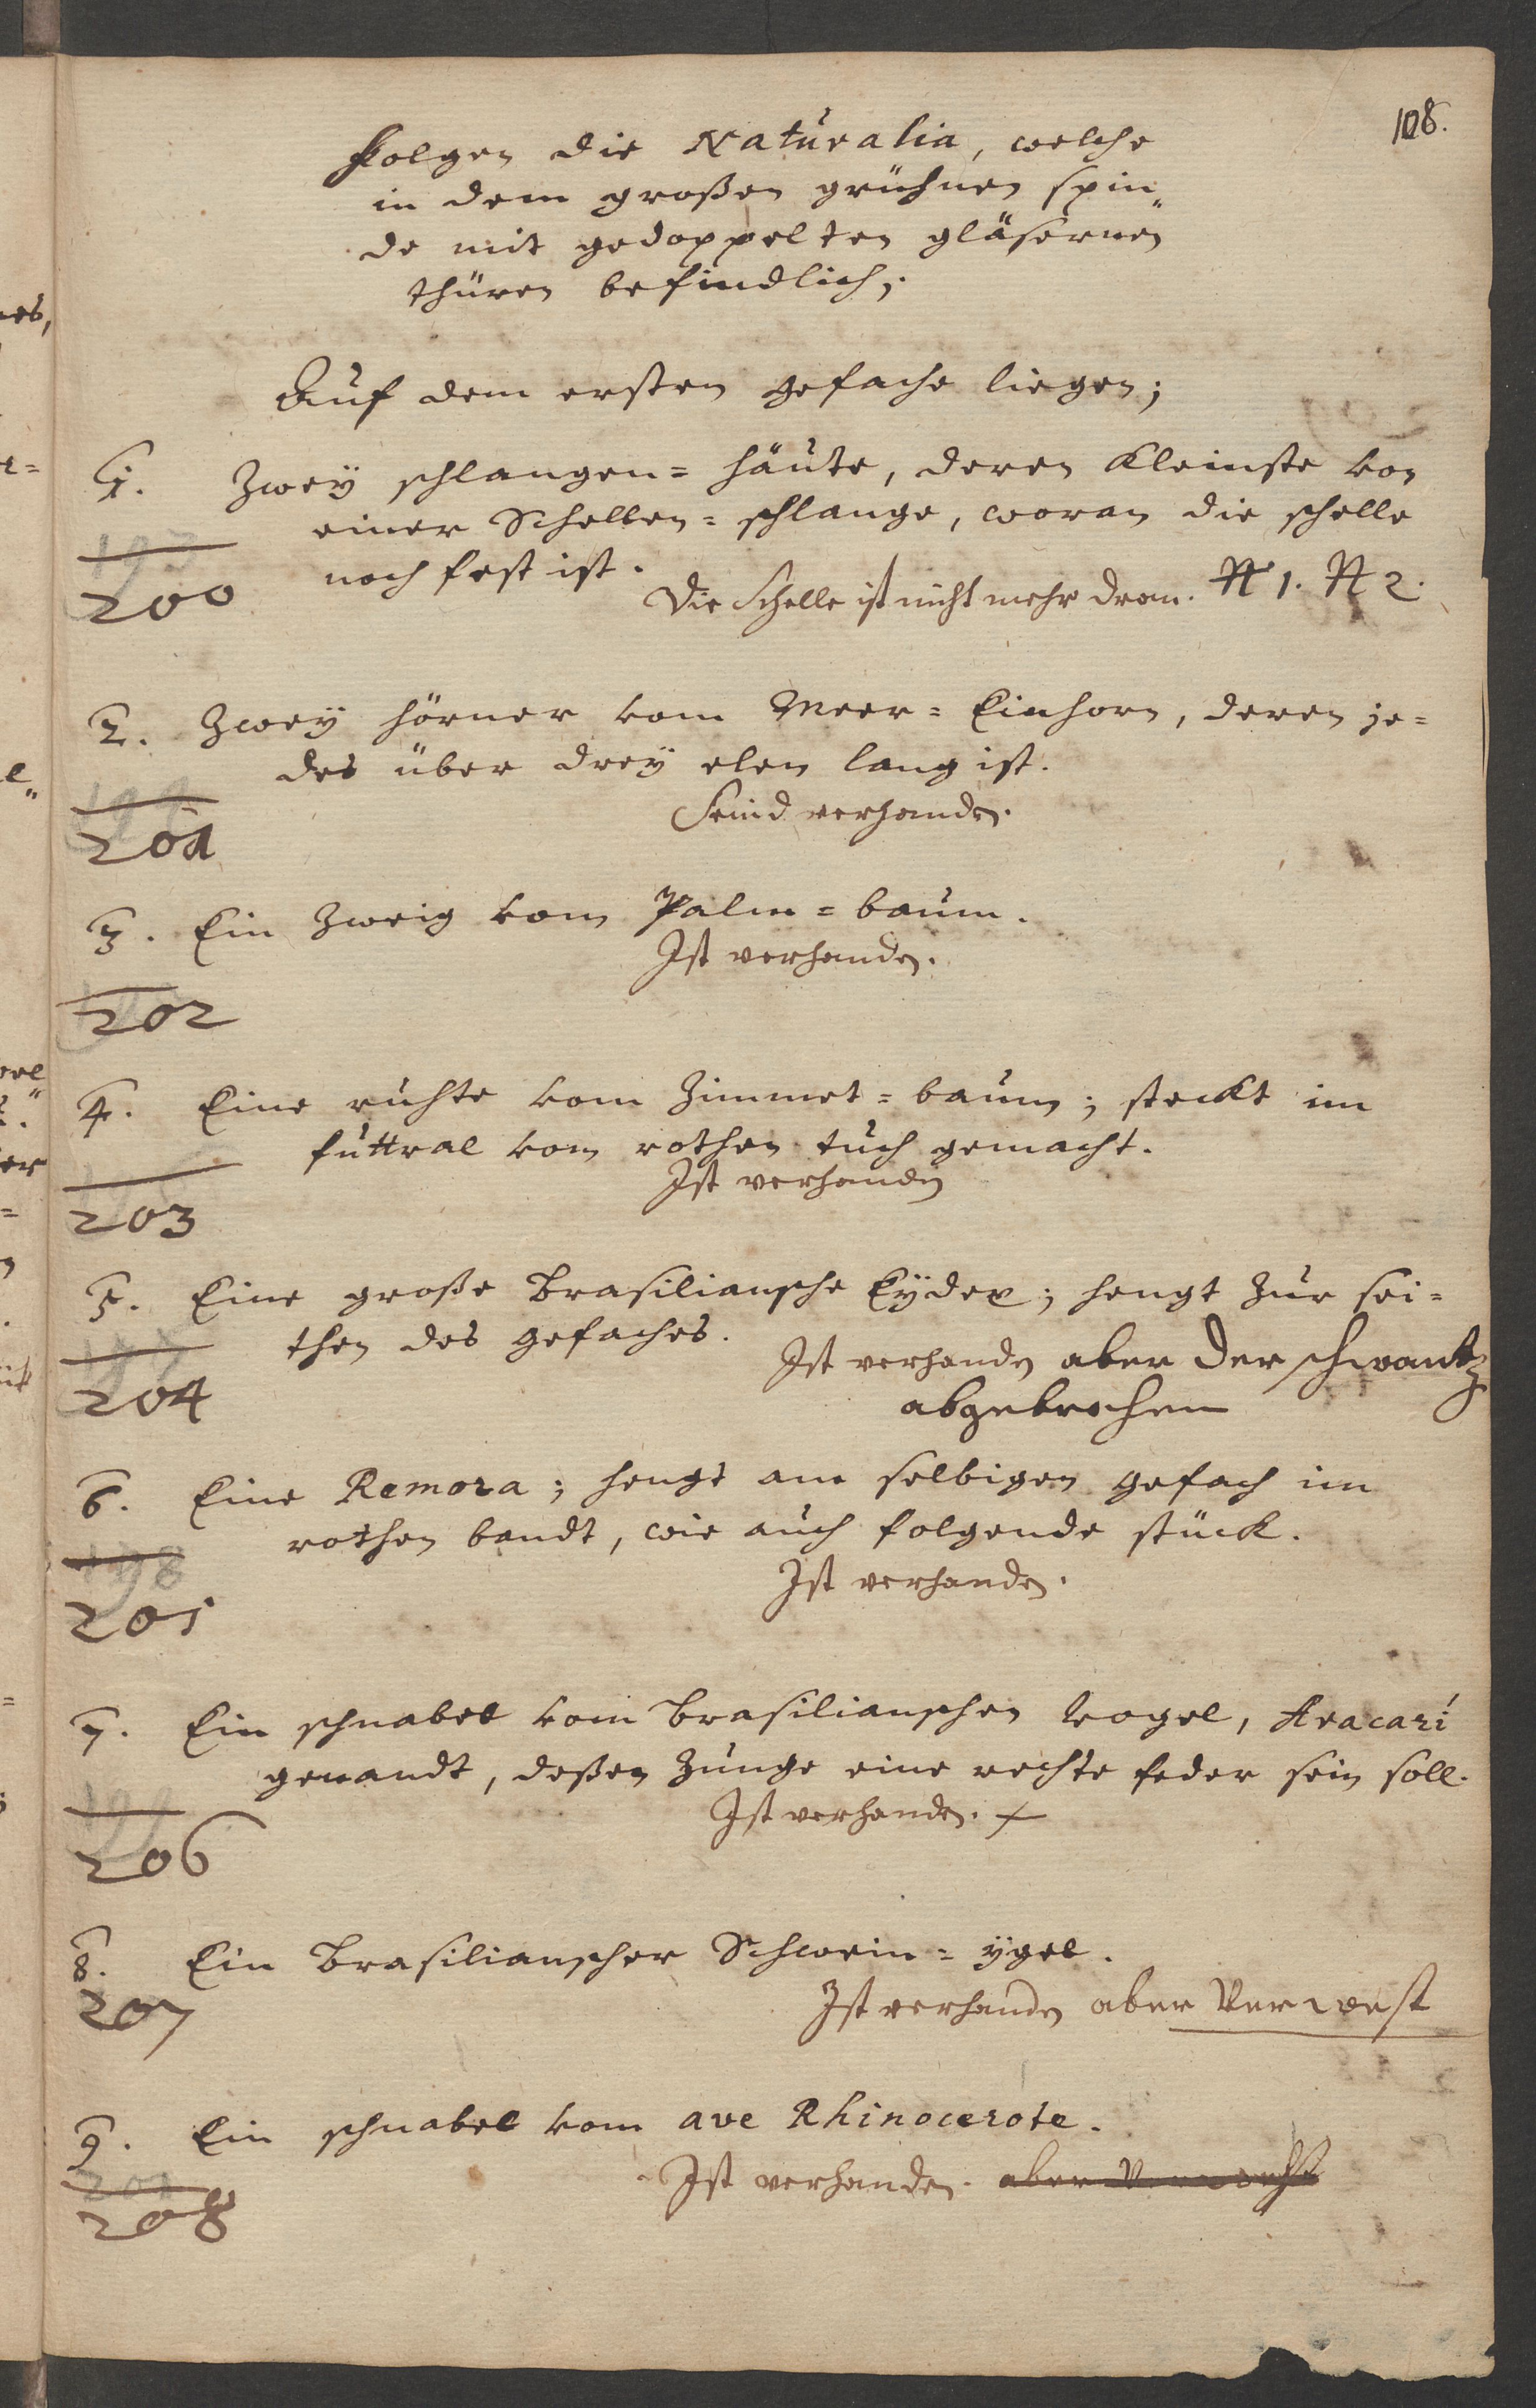 108.
Folgen die Naturalia, welche
in dem großen grühnen spin„
de mit gedoppelten gläsernen
thüren befindlich;
Auf dem ersten gefache liegen;
1. Zwey schlangen= häute, deren kleinste von
einer Schellen= schlange, woran die schelle
noch fest ist.
Die Schelle ist nicht mehr dran. N 1. N 2.
200
2. Zwey hörner vom Meer= Einhorn, deren je=
des über drey elen lang ist.
Seind verhanden.
201
3. Ein Zweig vom Palm= baum.
Ist verhanden.
202
4. Eine ruhte vom Zimmet= baum; steckt im
futtral von rothen tuch gemacht.
Ist verhanden
203
5. Eine große Brasiliansche Eydex; hengt zur sei=
then des gefaches.
Ist verhanden aber der schwantz
abgebrochen
204
6. Eine Remora; hengt am selbigen gefach im
rothen bandt, wie auch folgende stück.
Ist verhanden.
198
205
7. Ein schnabel vom Brasilianschen Vogel, Aracari
genandt, deßen Zunge eine rechte feder sein soll.
Ist verhanden. +
199
206
8. Ein Brasilianscher Schwein= ygel.
Ist verhanden aber Verwest
207
9. Ein schnabel vom ave Rhinocerote.
Ist verhanden. aber Verwest
201
208